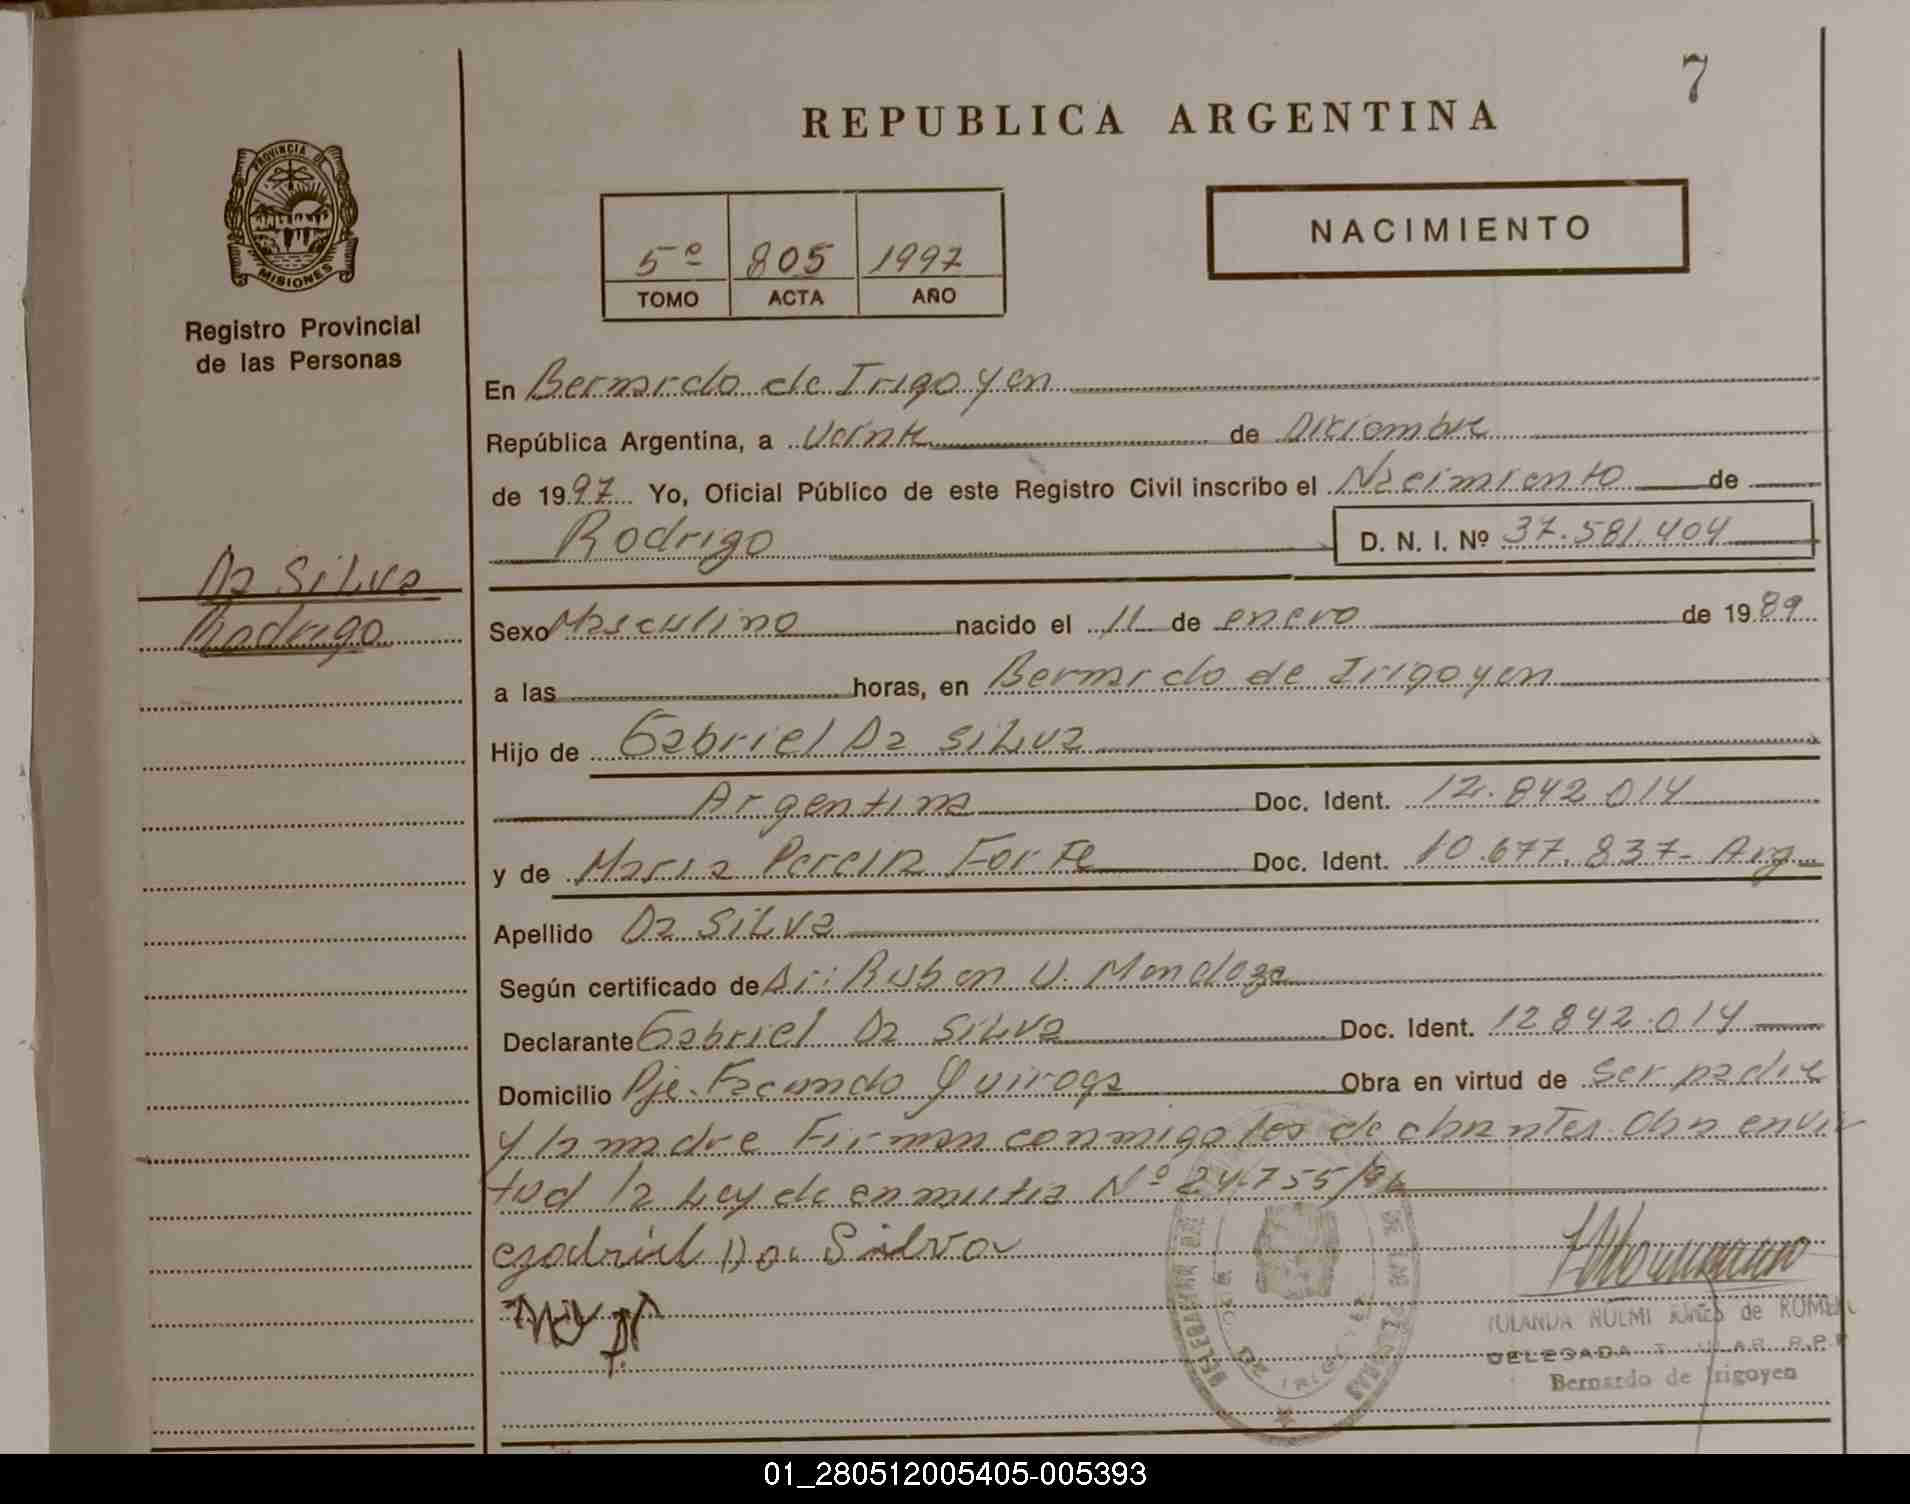 7
REPUBLICA ARGENTINA
PROVINCIA DE
MISIONES
Registro Provincial
de las Personas
5º 805 1997
TOMO ACTA AÑO
NACIMIENTO
En Bernardo de Irigoyen
República Argentina, a Veinte de Diciembre
de 1997 Yo, Oficial Público de este Registro Civil inscribo el Nacimiento de
Rodrigo D. N. I. Nº 37.581.404
Da Silva
Rodrigo
Sexo Masculino nacido el 11 de enero de 1989
a las horas, en Bernardo de Irigoyen
Hijo de Gabriel Da Silva
Argentina Doc. Ident. 12.842.014
y de Maria Pereira Forte Doc. Ident. 10.677.837- Arg
Apellido Da Silva
Según certificado de Dr: Ruben V. Mendoza
Declarante Gabriel Da Silva Doc. Ident. 12842.014
Domicilio Pje. Facundo Quiroga Obra en virtud de ser padre
y la madre Firman conmigo los declarantes. Obra en vir
tud la Ley de amnistia Nº 24.755/96
Gabriel Da Silva
YOLANDA NOEMI de ROMERO
DELEGADA TITULAR R.P.P
Bernardo de Irigoyen
01_280512005405-005393